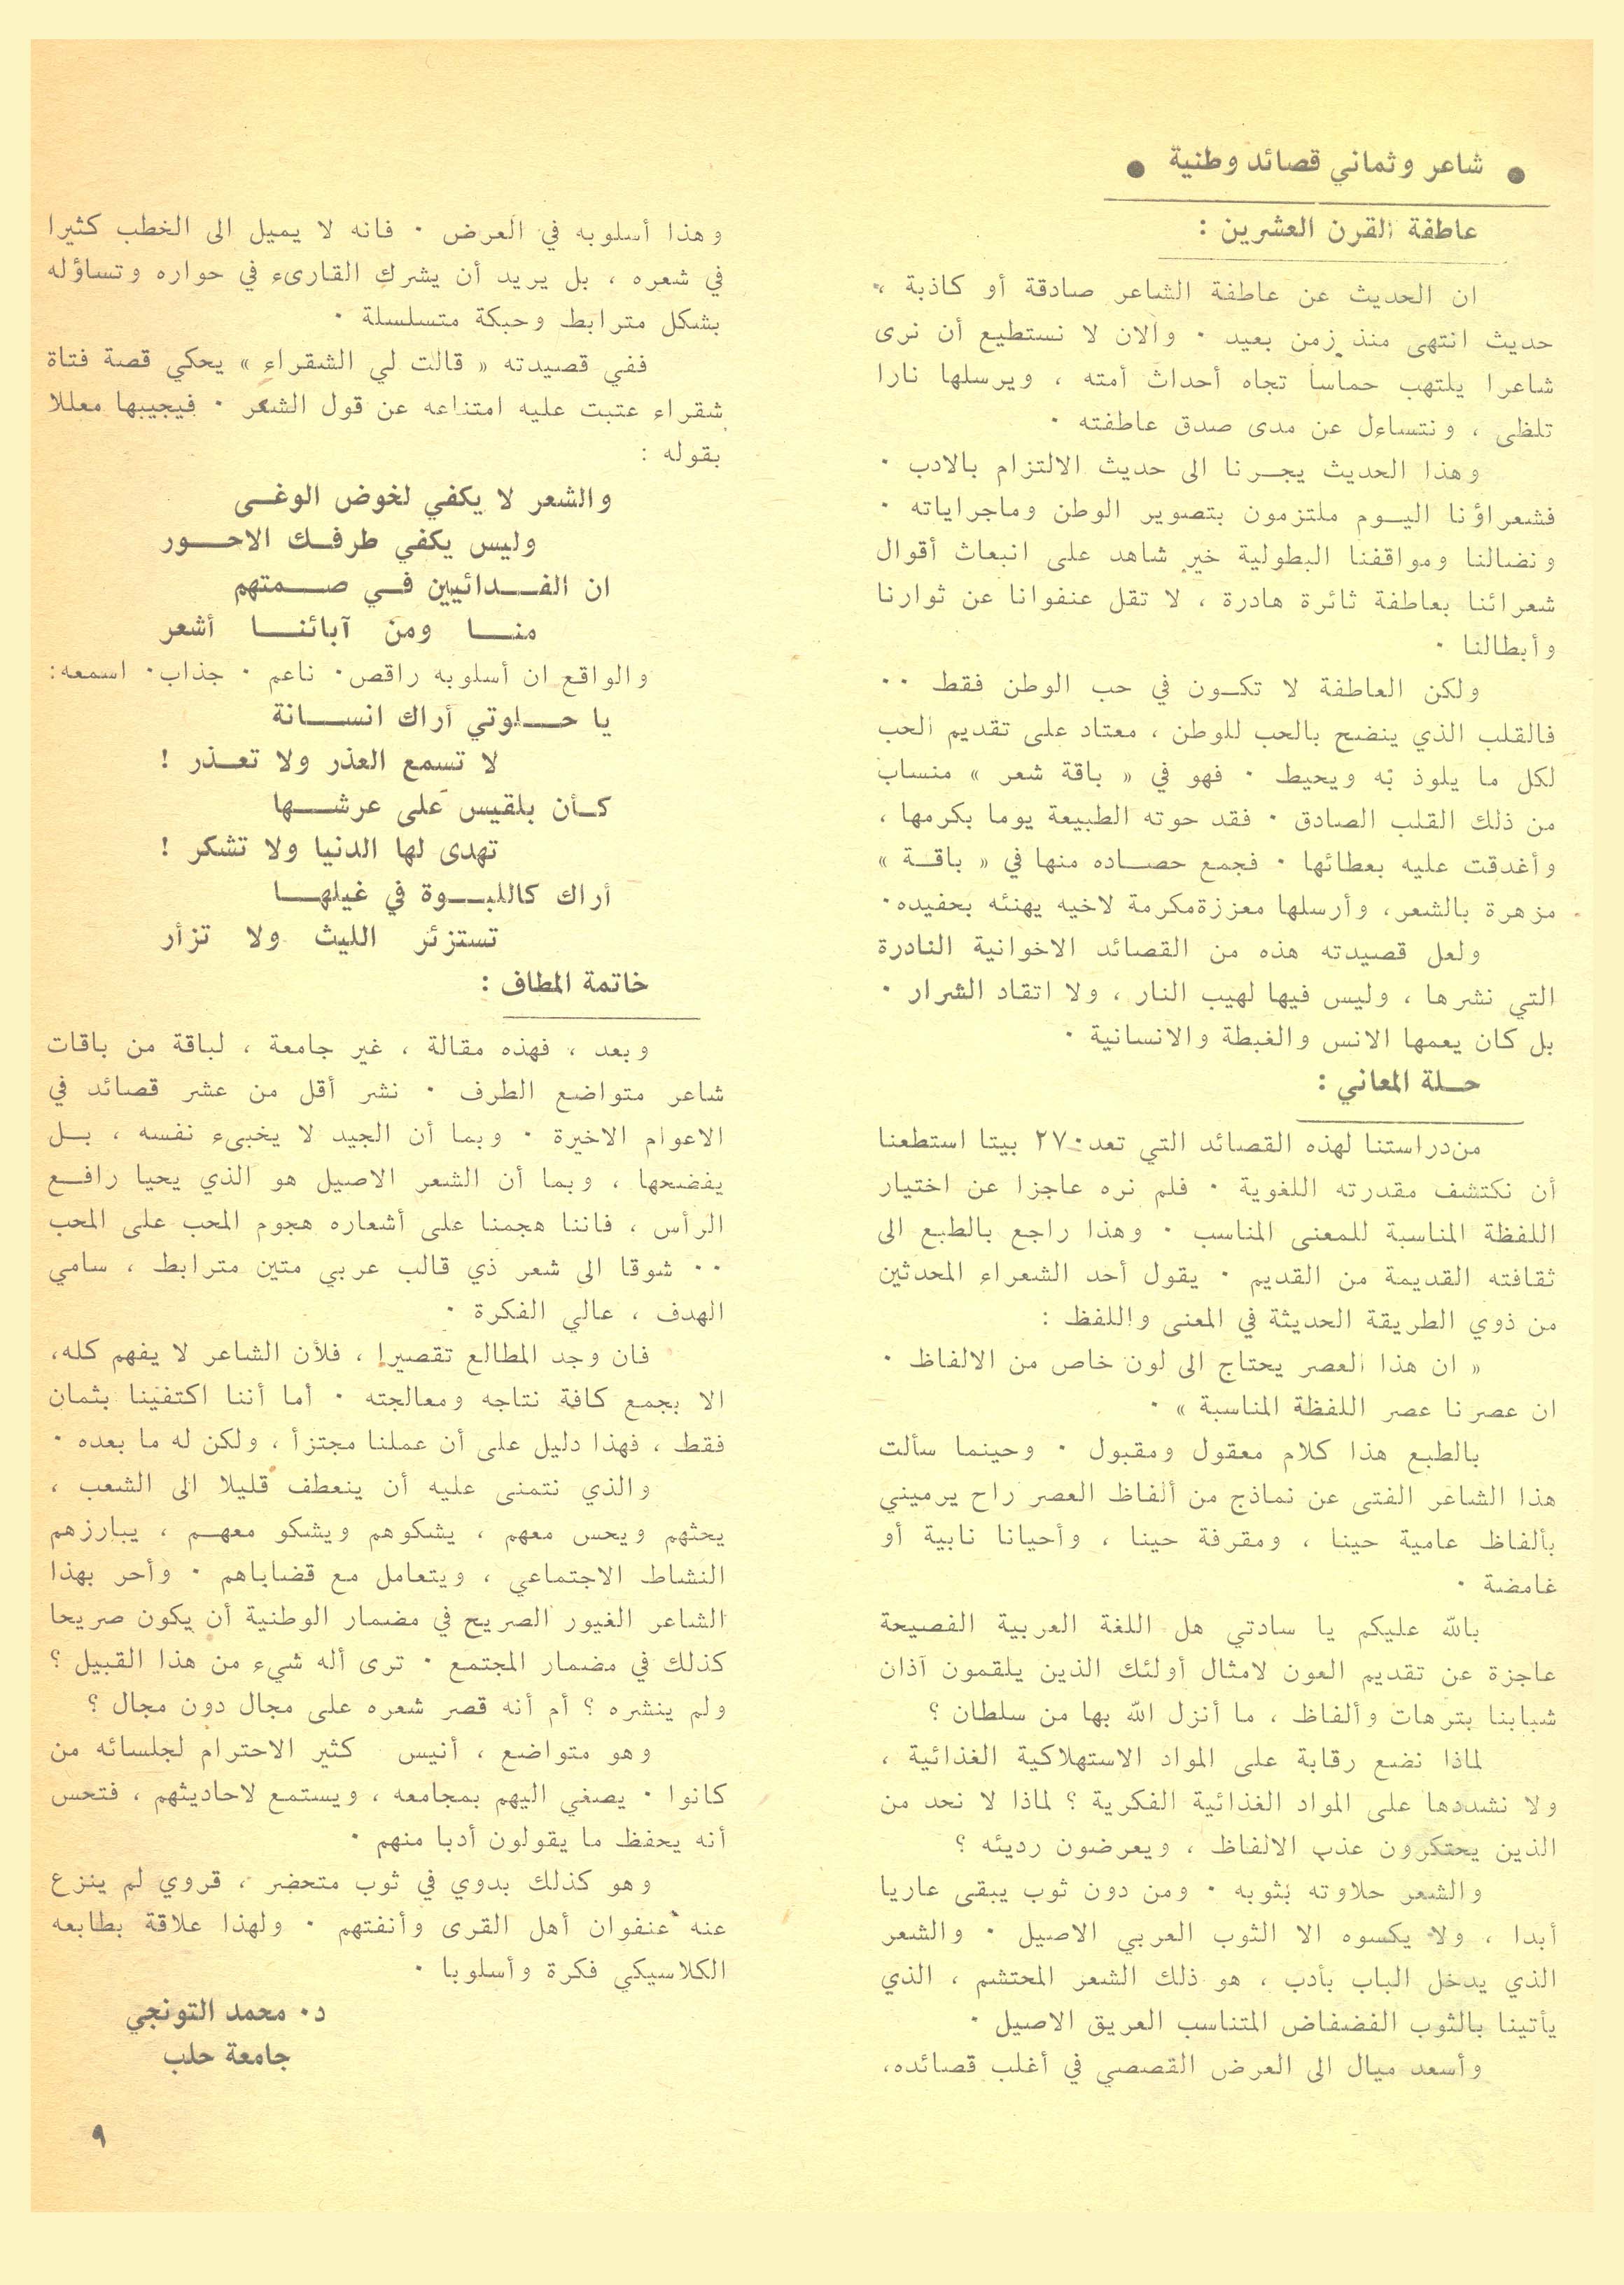 ● شاعر وثماني قصائد وطنية ●
عاطفة القرن العشرين :
ان الحديث عن عاطفة الشاعر صادقة أو كاذبة ،
حديث انتهى منذ زمن بعيد ٠ والان لا نستطيع أن نرى
شاعرا يلتهب حماسا تجاه أحداث أمته ، ويرسلها نارا
تلظى ، ونتساءل عن مدى صدق عاطفته ٠
وهذا الحديث يجرنا الى حديث الالتزام بالادب ٠
فشعراؤنا اليوم ملتزمون بتصوير الوطن وماجراياته ٠
ونضالنا ومواقفنا البطولية خير شاهد على انبعاث أقوال
شعرائنا بعاطفة ثائرة هادرة ، لا تقل عنفوانا عن ثوارنا
وأبطالنا ٠
ولكن العاطفة لا تكون في حب الوطن فقط ٠٠
فالقلب الذي ينضح بالحب للوطن ، معتاد على تقديم الحب
لكل ما يلوذ به ويحيط ٠ فهو في « باقة شعر » منساب
من ذلك القلب الصادق ٠ فقد حوته الطبيعة يوما بكرمها ،
وأغدقت عليه بعطائها ٠ فجمع حصاده منها في « باقة »
مزهرة بالشعر، وأرسلها معززةمكرمة لاخيه يهنئه بحفيده٠
ولعل قصيدته هذه من القصائد الاخوانية النادرة
التي نشرها ، وليس فيها لهيب النار ، ولا اتقاد الشرار ٠
بل كان يعمها الانس والغبطة والانسانية ٠
حلة المعاني :
من‌دراستنا لهذه القصائد التي تعد ٢٧٠ بيتا استطعنا
أن نكتشف مقدرته اللغوية ٠ فلم نره عاجزا عن اختيار
اللفظة المناسبة للمعنى المناسب ٠ وهذا راجع بالطبع الى
ثقافته القديمة من القديم ٠ يقول أحد الشعراء المحدثين
من ذوي الطريقة الحديثة في المعنى واللفظ :
« ان هذا العصر يحتاج الى لون خاص من الالفاظ ٠
ان عصرنا عصر اللفظة المناسبة » ٠
بالطبع هذا كلام معقول ومقبول ٠ وحينما سألت
هذا الشاعر الفتى عن نماذج من ألفاظ العصر راح يرميني
بألفاظ عامية حينا ، ومقرفة حينا ، وأحيانا نابية أو
غامضة ٠
بالله عليكم يا سادتي هل اللغة العربية الفصيحة
عاجزة عن تقديم العون لامثال أولئك الذين يلقمون آذان
شبابنا بترهات وألفاظ ، ما أنزل الله بها من سلطان ؟
لماذا نضع رقابة على المواد الاستهلاكية الغذائية ،
ولا نشددها على المواد الغذائية الفكرية ؟ لماذا لا نحد من
الذين يحتكرون عذب الالفاظ ، ويعرضون رديئه ؟
والشعر حلاوته بثوبه ٠ ومن دون ثوب يبقى عاريا
أبدا ، ولا يكسوه الا الثوب العربي الاصيل ٠ والشعر
الذي يدخل الباب بأدب ، هو ذلك الشعر المحتشم ، الذي
يأتينا بالثوب الفضفاض المتناسب العريق الاصيل ٠
وأسعد ميال الى العرض القصصي في أغلب قصائده،
وهذا أسلوبه في العرض ٠ فانه لا يميل الى الخطب كثيرا
في شعره ، بل يريد أن يشرك القارىء في حواره وتساؤله
بشكل مترابط وحبكة متسلسلة ٠
ففي قصيدته « قالت لي الشقراء » يحكي قصة فتاة
شقراء عتبت عليه امتناعه عن قول الشعر ٠ فيجيبها معللا
بقوله :
والشعر لا يكفي لخوض الوغى
وليس يكفي طرفك الاحور
ان الفدائيين في صمتهم
منا ومن آبائنا أشعر
والواقع ان أسلوبه راقص٠ ناعم ٠ جذاب٠ اسمعه:
يا حلوتي أراك انسانة
لا تسمع العذر ولا تعذر !
كأن بلقيس على عرشها
تهدى لها الدنيا ولا تشكر !
أراك كاللبوة في غيلها
تستزئر الليث ولا تزأر
خاتمة المطاف :
وبعد ، فهذه مقالة ، غير جامعة ، لباقة من باقات
شاعر متواضع الطرف ٠ نشر أقل من عشر قصائد في
الاعوام الاخيرة ٠ وبما أن الجيد لا يخبىء نفسه ، بل
يفضحها ، وبما أن الشعر الاصيل هو الذي يحيا رافع
الرأس ، فاننا هجمنا على أشعاره هجوم المحب على المحب
٠٠ شوقا الى شعر ذي قالب عربي متين مترابط ، سامي
الهدف ، عالي الفكرة ٠
فان وجد المطالع تقصيرا ، فلأن الشاعر لا يفهم كله،
الا بجمع كافة نتاجه ومعالجته ٠ أما أننا اكتفينا بثمان
فقط ، فهذا دليل على أن عملنا مجتزأ ، ولكن له ما بعده ٠
والذي نتمنى عليه أن ينعطف قليلا الى الشعب ،
يحثهم ويحس معهم ، يشكوهم ويشكو معهم ، يبارزهم
النشاط الاجتماعي ، ويتعامل مع قضاياهم ٠ وأحر بهذا
الشاعر الغيور الصريح في مضمار الوطنية أن يكون صريحا
كذلك في مضمار المجتمع ٠ ترى أله شيء من هذا القبيل ؟
ولم ينشره ؟ أم أنه قصر شعره على مجال دون مجال ؟
وهو متواضع ، أنيس كثير الاحترام لجلسائه من
كانوا ٠ يصغي اليهم بمجامعه ، ويستمع لاحاديثهم ، فتحس
أنه يحفظ ما يقولون أدبا منهم ٠
وهو كذلك بدوي في ثوب متحضر ، قروي لم ينزع
عنه عنفوان أهل القرى وأنفتهم ٠ ولهذا علاقة بطابعه
الكلاسيكي فكرة وأسلوبا ٠
د٠ محمد التونجي
جامعة حلب
٩